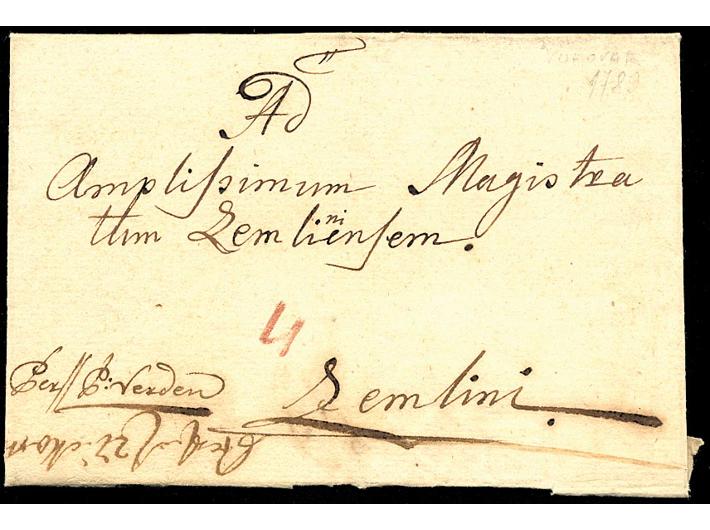 VUKOVAR
1783
Ad
Amplissimum Magistra
tum Zemliniensem.
4
Per P: Verden
Zemlini.